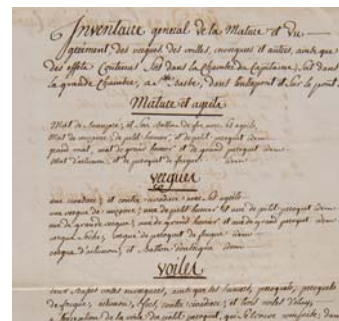 Inventaire general de la Mature et du
greement des vergues des voiles, manoeuvres et autres, ainsi que
des effets Contenus Soit dans la Chambre du Capitaine, Soit dans
la grande Chambre, a Ste barbe, dans l'entrepont et Sur le pont
Mature et agrêts
Mat de beaupré, et Son batton de foc avec les agrêts
Mat de mizaine, de petit hunier, et de petit perroquet idem
grand mat, mat de grand hunier et de grand perroquet idem
Mat d'artimon, et de perroquet de fougue idem
Vergues
une civadiere, et contre civadiere avec les agrêts
une vergue de mizaine, une de petit hunier et une de petit perroquet idem
une de grande vergue, une de grand hunier et une de grand perroquet idem
vergue Seche, vergue de perroquet de fougue idem
vergue d'artimon, et batton idem
Voiles
voiles majeures, huniers, perroquets, perroquets
de fougue, artimon, focs, contre civadiere, et trois voiles d'etay,
a l'exception de la voile de petit perroquet, qui